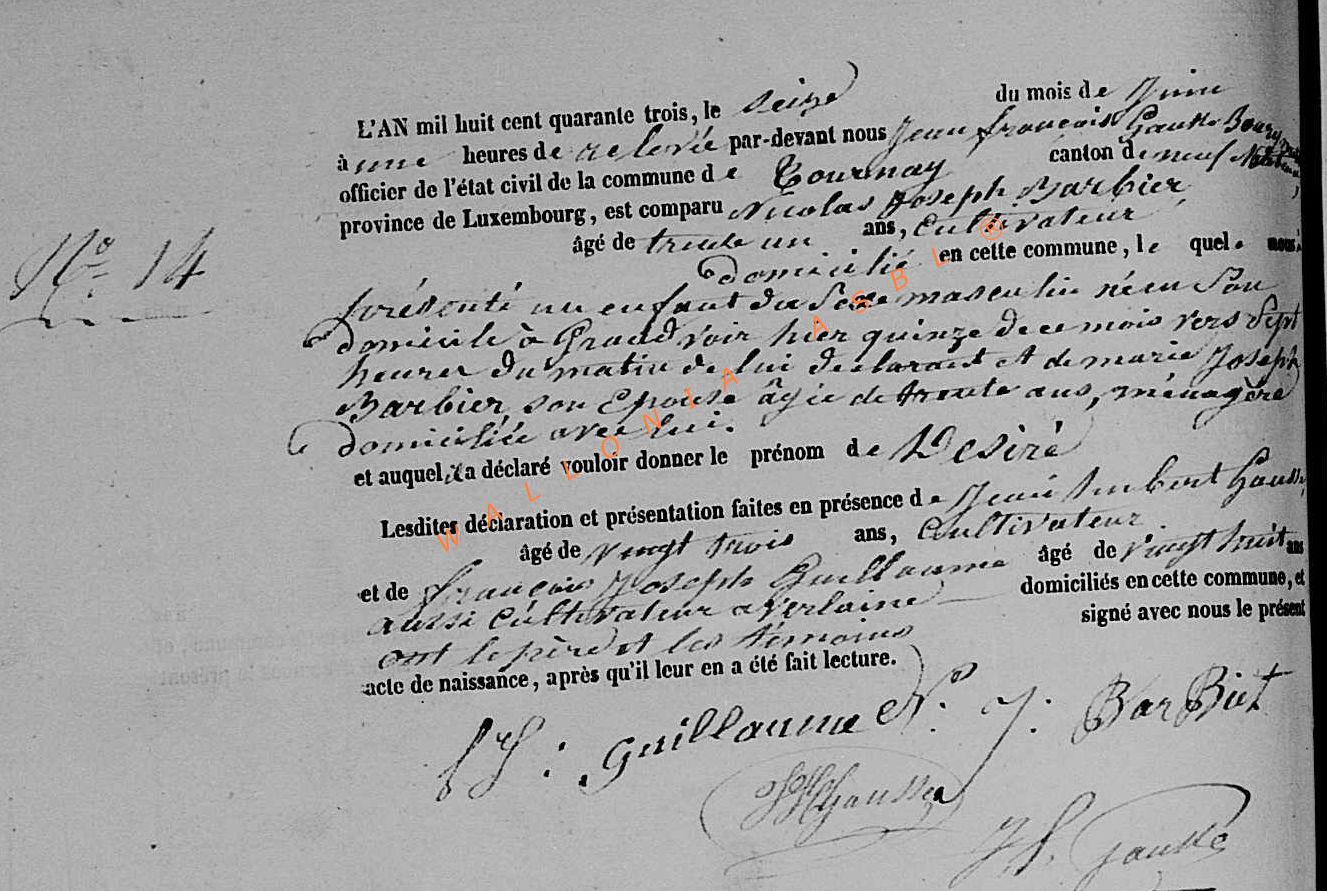 L'AN mil huit cent quarante trois, le seize du mois de Juin
à une heures de relevé par-devant nous Jean françois Gausse Bourg
officier de l'état civil de la commune de Tournay canton de neuf
province de Luxembourg, est comparu Nicolas Joseph Barbier
N° 14
âgé de trente un ans, Cultivateur
domicilié en cette commune, le quel nous
présenté un enfant du Sexe masculin né en Son
domicile à Grandvoir hier quinze de ce mois vers Sept
heures du matin de lui déclarant et de marie Joseph
Barbier, son Epouse âgée de trente ans, ménagère
domiciliée avec lui.
et auquel il a déclaré vouloir donner le prénom de Desiré
Lesdites déclaration et présentation faites en présence de Jean hubert Gausse,
âgé de vingt trois ans, Cultivateur
et de françois Joseph Guillaume âgé de vingt huit ans
aussi Cultivateur a verlaine domiciliés en cette commune, et
ont le père et les témoins signé avec nous le présent
acte de naissance, après qu'il leur en a été fait lecture.
fJ: Guillaume N. J. BarBiet
JH Gausse
J f. Gausse
WALLONIA ASBL ®